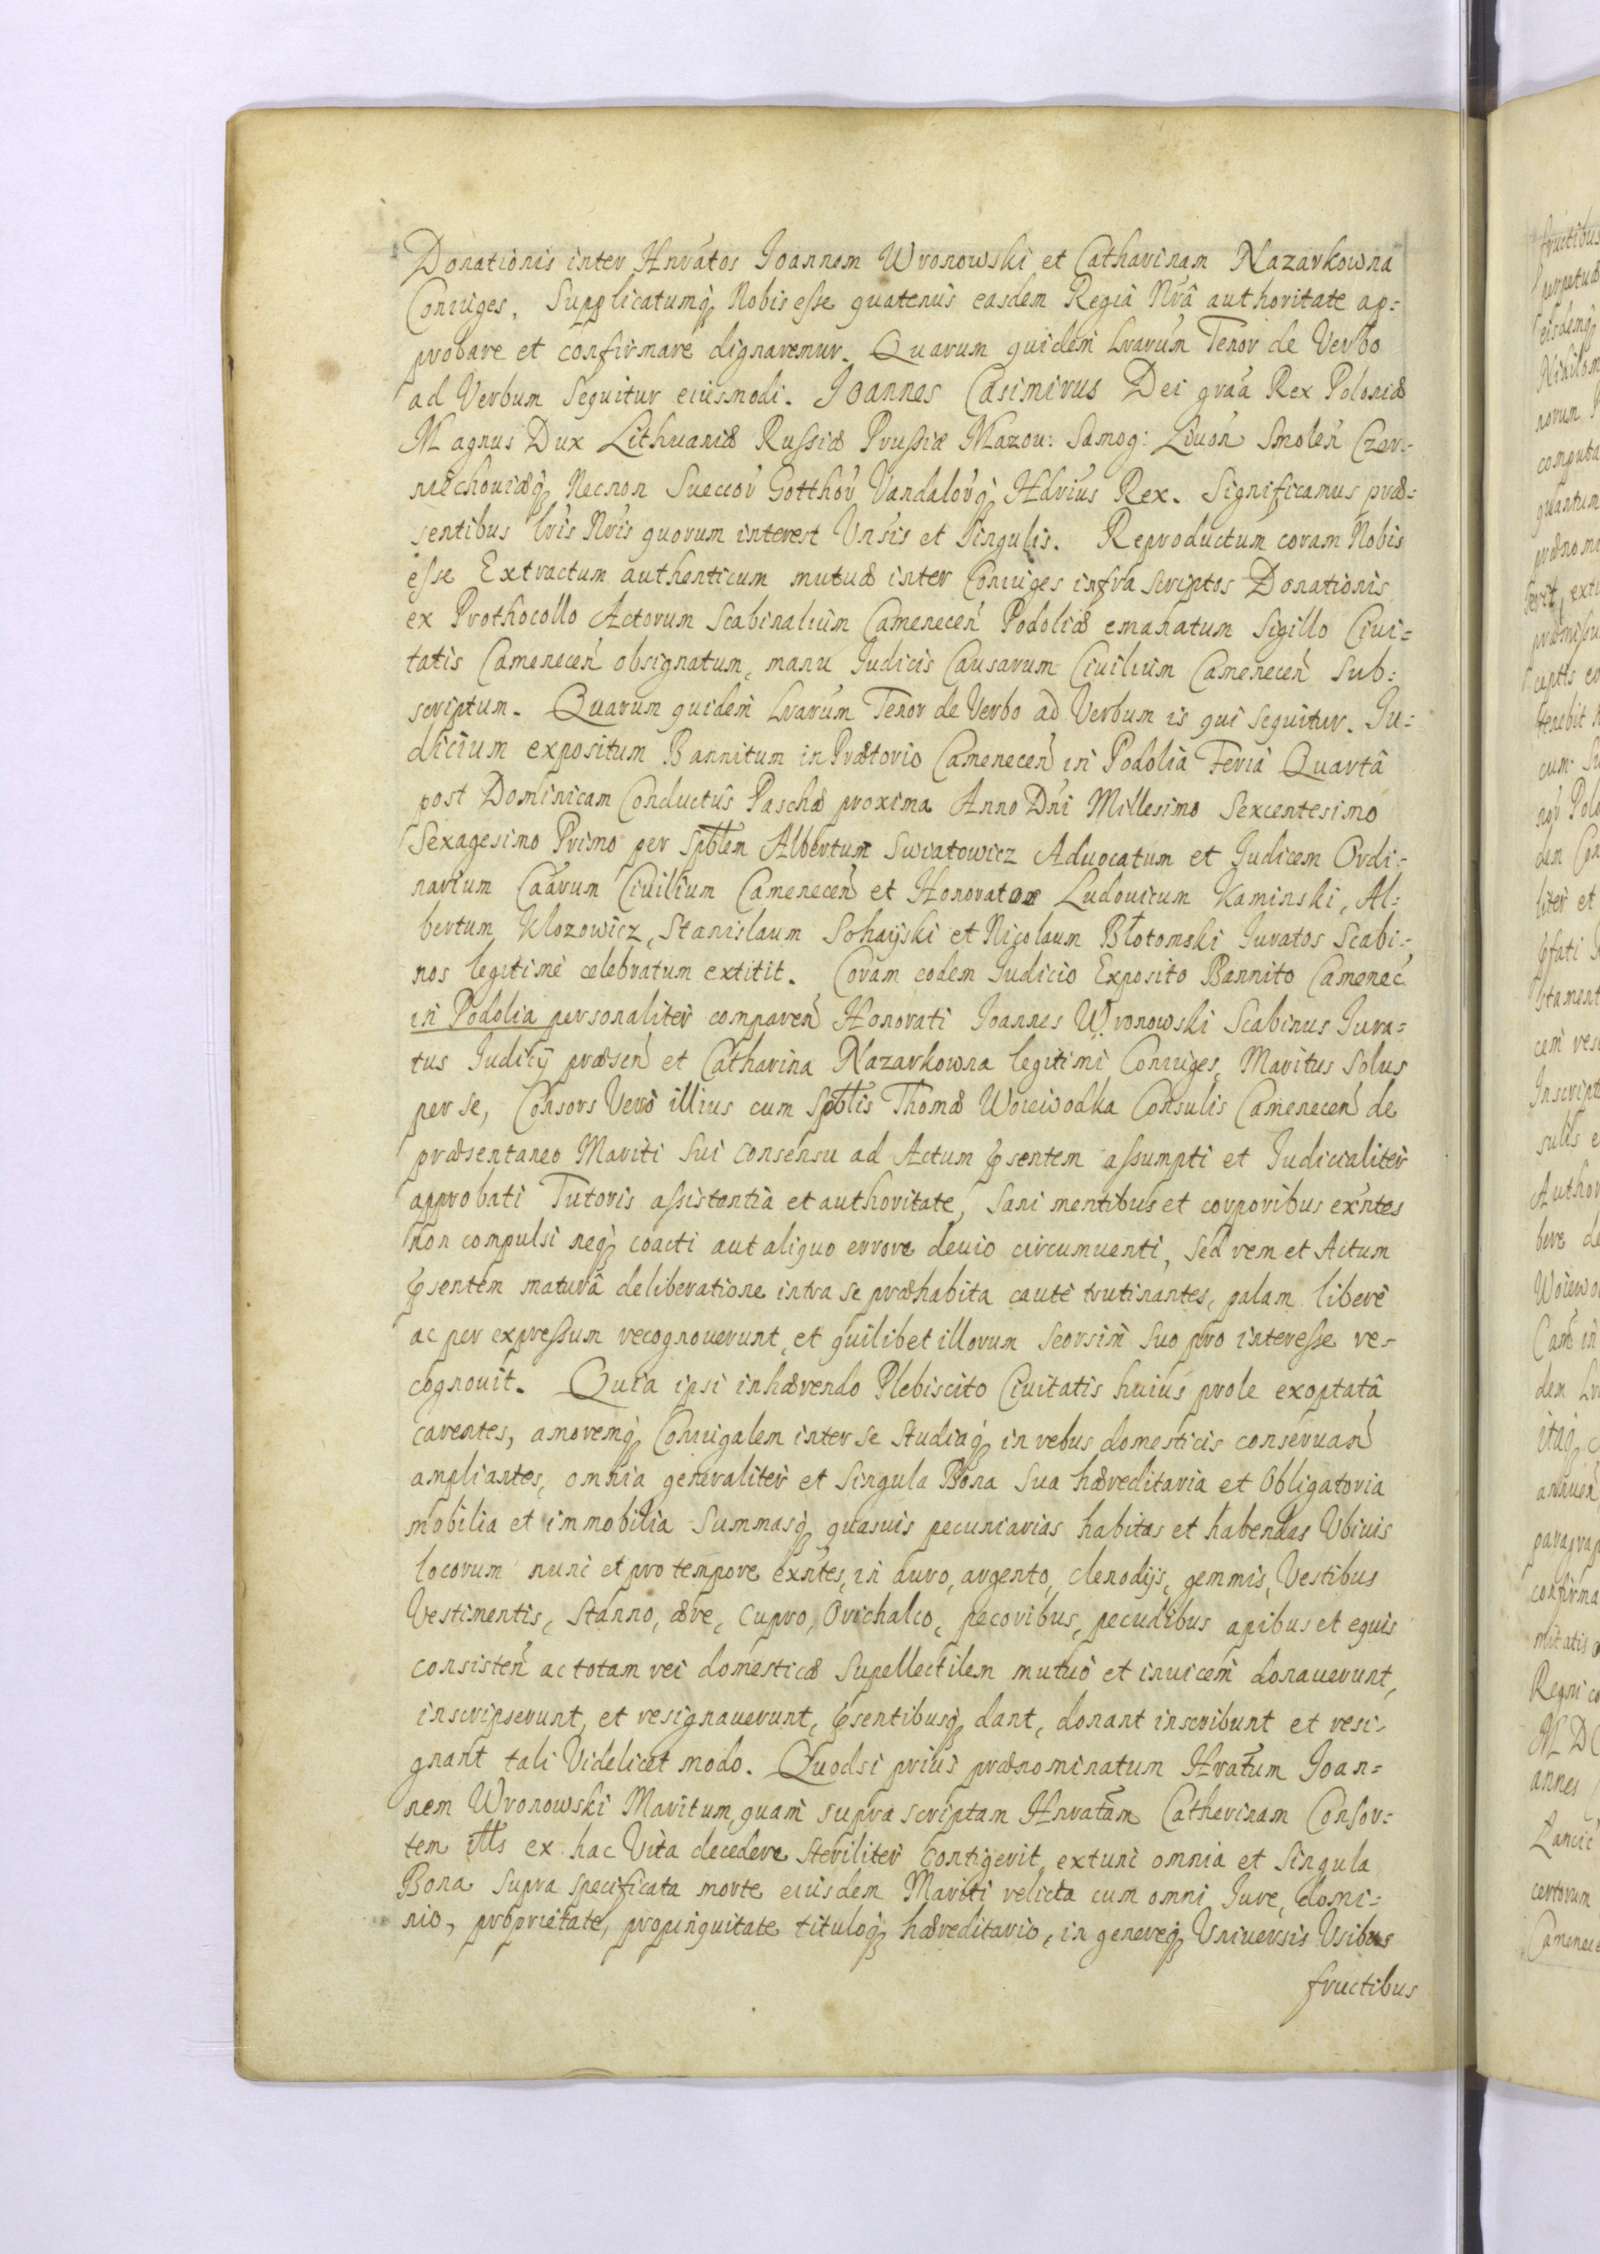 Donationis inter Hnratos Joannem Wronowski et Catharinam Nazarkowna
Coniuges. Supplicatumq́ Nobis esse quatenus easdem Regiâ Nrâ authoritate ap=
probare et confirmare dignaremur. Quarum quidem Lrarum Tenor de Verbo
ad Verbum Sequitur eiusmodi. Joannes Casimirus Dei graa Rex Poloniæ
Magnus Dux Lithuaniæ Russiæ Prussiæ Mazou: Samog: Liuon̄ Smolen̄ Czer-
niechouiæq́ Necnon Sueccor̄ Gotthor̄ Vandalor̄q́ Hdrius Rex. Significamus præ=
sentibus lris Nris quorum interest Vnsis et Singulis. Reproductum coram Nobis
esse Extractum authenticum mutuæ inter Coniuges infra scriptos Donationis
ex Prothocollo Actorum Scabinalium Camenecen̄ Podoliæ emanatum Sigillo Ciui=
tatis Camenecen̄ obsignatum, manu Judicis Causarum Ciuilium Camenecen̄ Sub=
scriptum. Quarum quidem Lrarum Tenor de Verbo ad Verbum is qui sequitur. Ju=
dicium expositum Bannitum in Prætorio Camenecen̄ in Podolia Feriâ Quartâ
post Dominicam Conductûs Paschæ proxima Anno Dni Millesimo Sexcentesimo
Sexagesimo Primo per Spttem Albertum Swiatowicz Aduocatum et Judicem Ordi=
narium Caarum Ciuilium Camenecen̄ et Honoratos Ludouicum Kaminski, Al=
bertum Klozowicz, Stanislaum Sohayski et Nicolaum Błotomski Juratos Scabi=
nos legitimè celebratum extitit. Coram eodem Judicio Exposito Bannito Camenec̄
in Podolia personaliter comparen̄ Honorati Joannes Wronowski Scabinus Jura=
tus Judicÿ præsen̄ et Catharina Nazarkowna legitimi Coniuges, Maritus Solus
per se, Consors Verò illius cum Spttis Thomæ Woieiwodka Consulis Camenecen̄ de
præsentaneo Mariti Sui consensu ad Actum ꝓsentem assumpti et Judicialiter
approbati Tutoris assistentia et authoritate, Sani mentibus et corporibus exntes
non compulsi neq́ coacti aut aliquo errore deuio circumuenti, Sed rem et Actum
ꝓsentem maturâ deliberatione intra se præhabita cautè trutinantes, palam liberè
ac per expressum recognouerunt, et quilibet illorum seorsim suo pro interesse re-
cognouit. Quia ipsi inhærendo Plebiscito Ciuitatis huius prole exoptatâ
carentes, amoremq́ Coniugalem inter se studiaq́ in rebus domesticis conseruan̄
ampliantes, omnia generaliter et Singula Bona Sua hæreditaria et Obligatoria
mobilia et immobilia Summasq́ quasuis pecuniarias habitas et habendas Vbiuis
locorum nunc et pro tempore exntes, in auro, argento, clenodijs, gemmis, Vestibus
Vestimentis, Stanno, ære, Cupro, Orichalco, pecoribus, pecudibus apibus et equis
consisten̄ ac totam rei domesticæ Supellectilem mutuò et inuicem donauerunt,
inscripserunt, et resignauerunt, ꝓsentibusq́ dant, donant inscribunt et resi-
gnant tali Videlicet modo. Quodsi prius prænominatum Hratum Joan=
nem Wronowski Maritum, quam supra scriptam Hnratam Catherinam Consor=
tem ills ex hac Vita decedere steriliter contigerit, extunc omnia et Singula
Bona supra specificata morte eiusdem Mariti relicta cum omni Jure, domi=
nio, proprietate, propinquitate tituloq́ hæreditario, in genereq́ Vniuersis Vsibus
fructibus